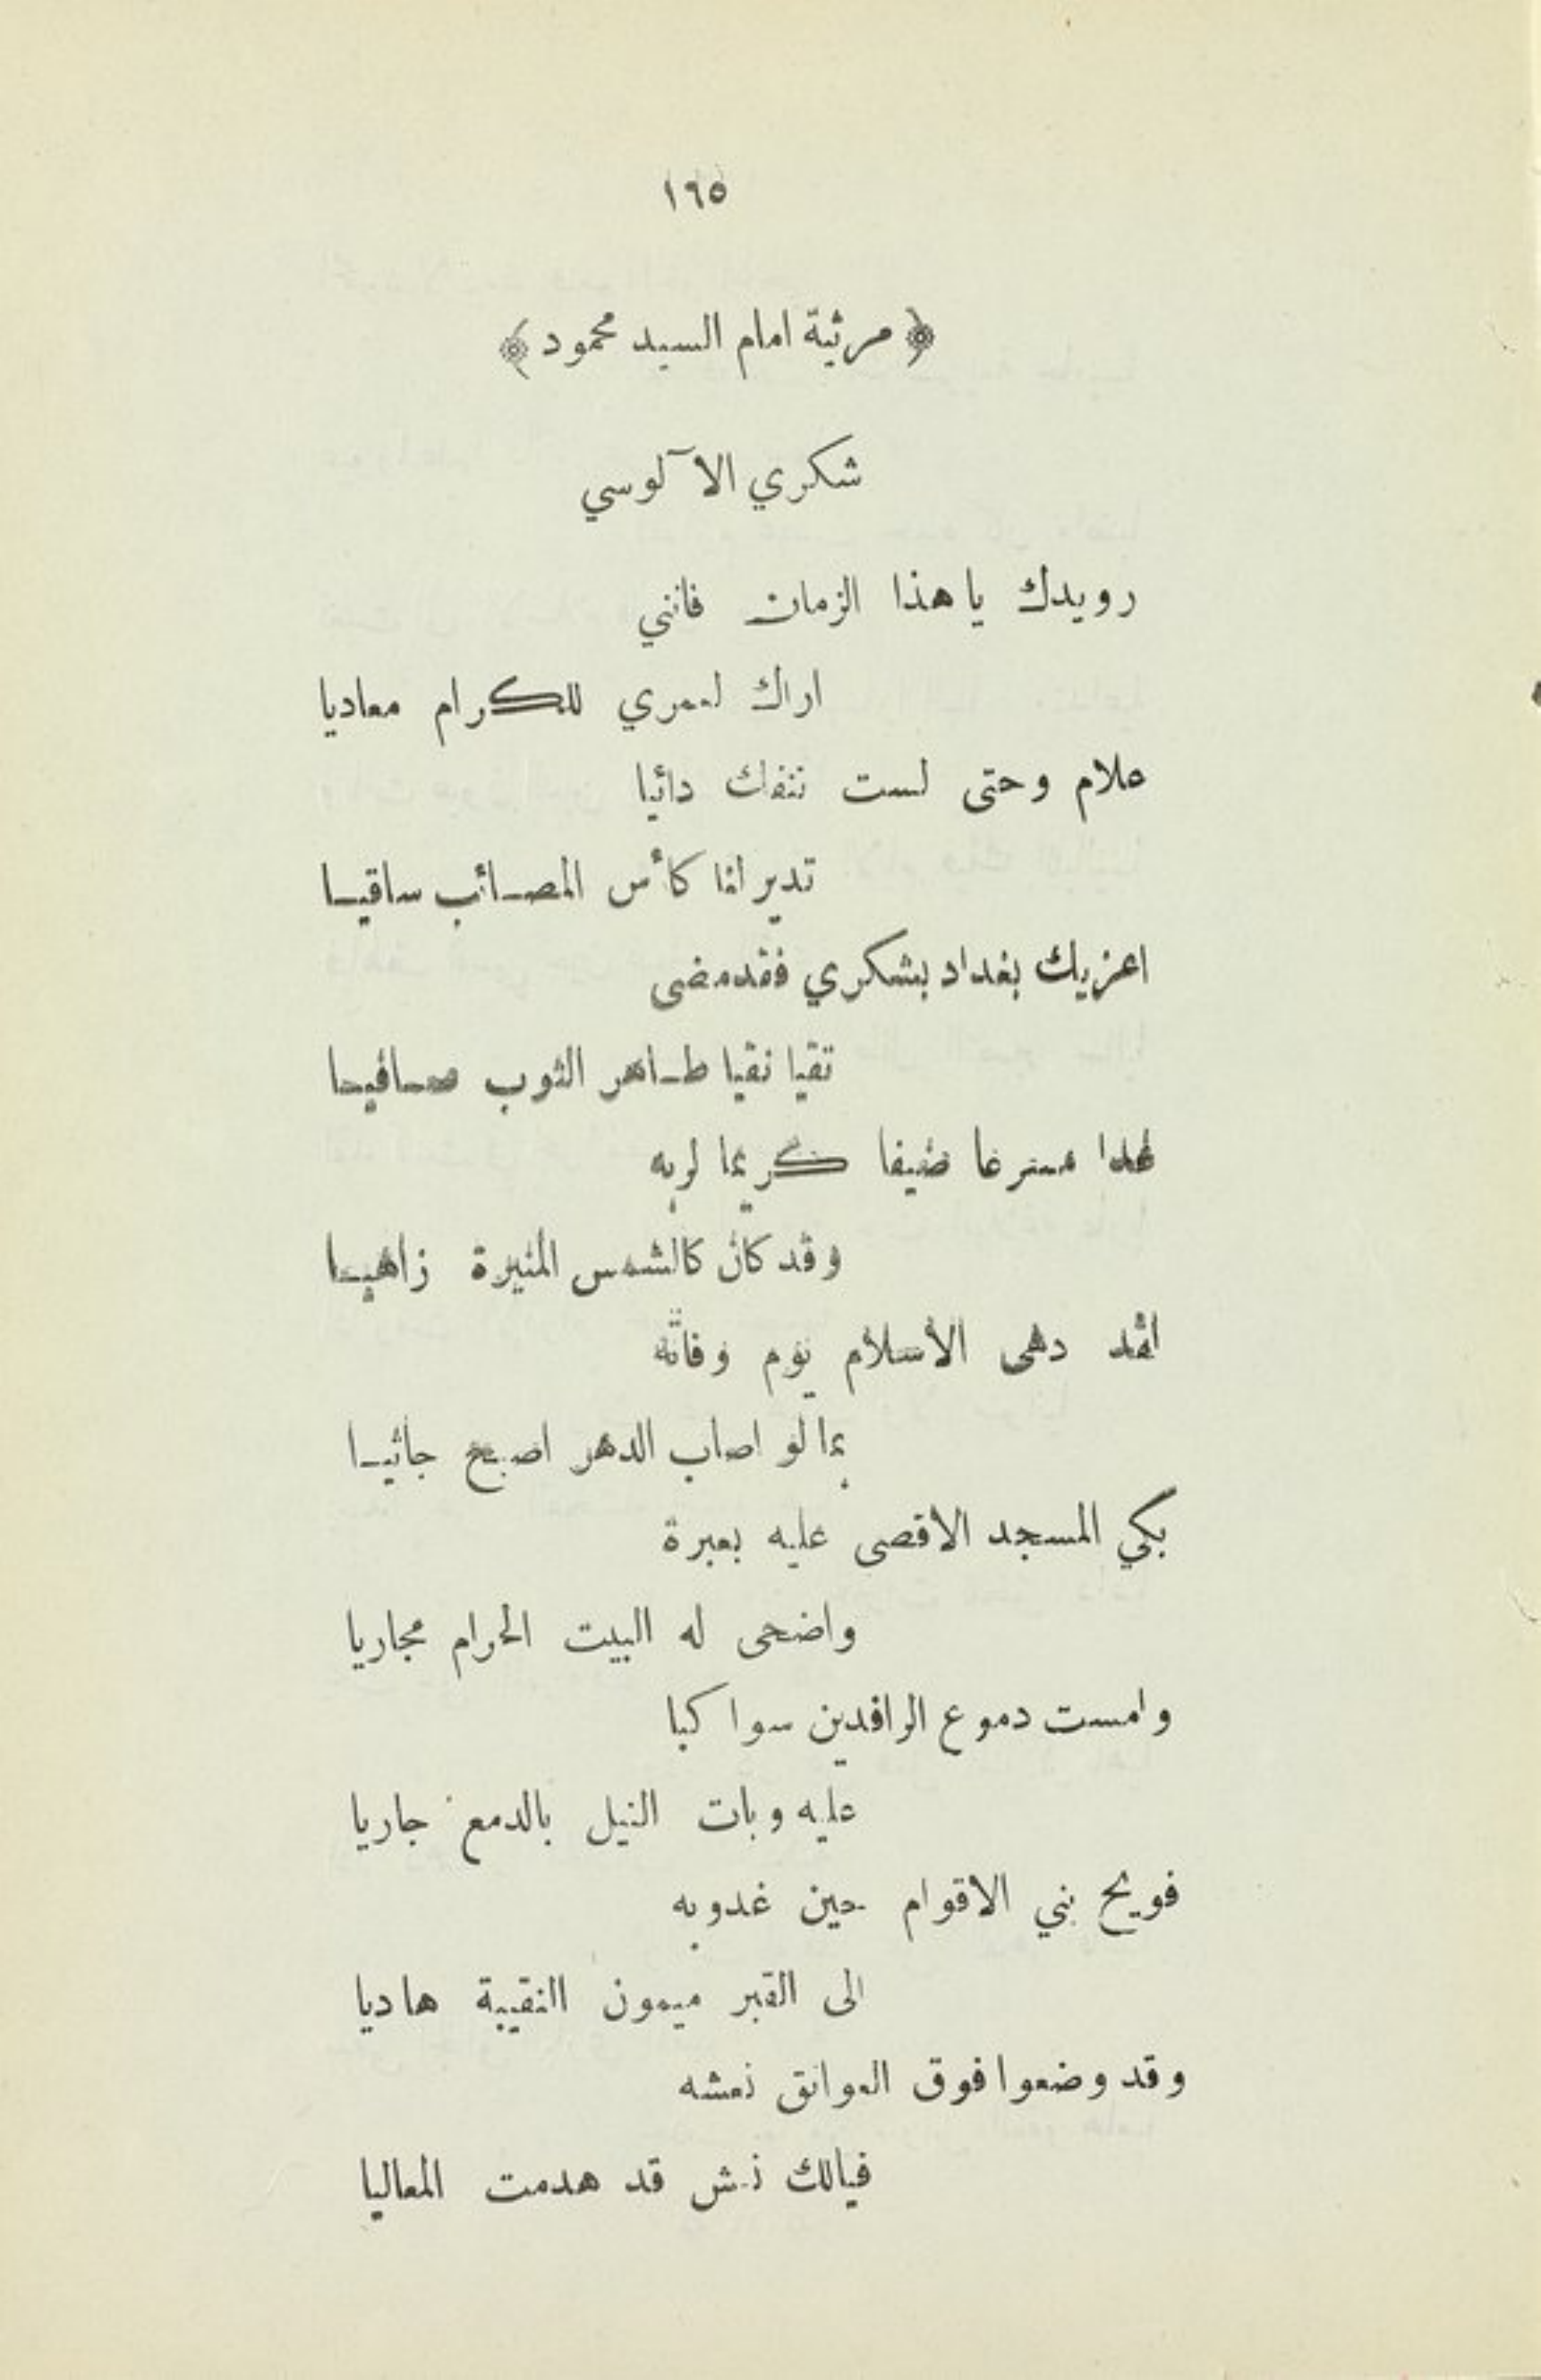 ١٦٥
﴿ مرثية امام السيد محمود ﴾
شكري الآلوسي
رويدك يا هذا الزمان فانني
اراك لعمري للكرام معاديا
علام وحتى لست تنفك دائيا
تدير لنا كأس المصائب ساقيا
اعزيك بغداد بشكري فقد مضى
تقيا نقيا طاهر الثوب صافيا
غدا مسرعا ضيفا كريما لربه
وقد كان كالشمس المنيرة زاهيا
لقد دهى الاسلام يوم وفاته
بما لو اصاب الدهر اصبح جاثيا
بكي المسجد الاقصى عليه بعبرة
واضحى له البيت الحرام مجاريا
وامست دموع الرافدين سواكبا
عليه وبات النيل بالدمع جاريا
فويح بني الاقوام حين غدوبه
الى القبر ميمون النقيبة هاديا
وقد وضعوا فوق العواتق نعشه
فيالك نعش قد هدمت المعاليا